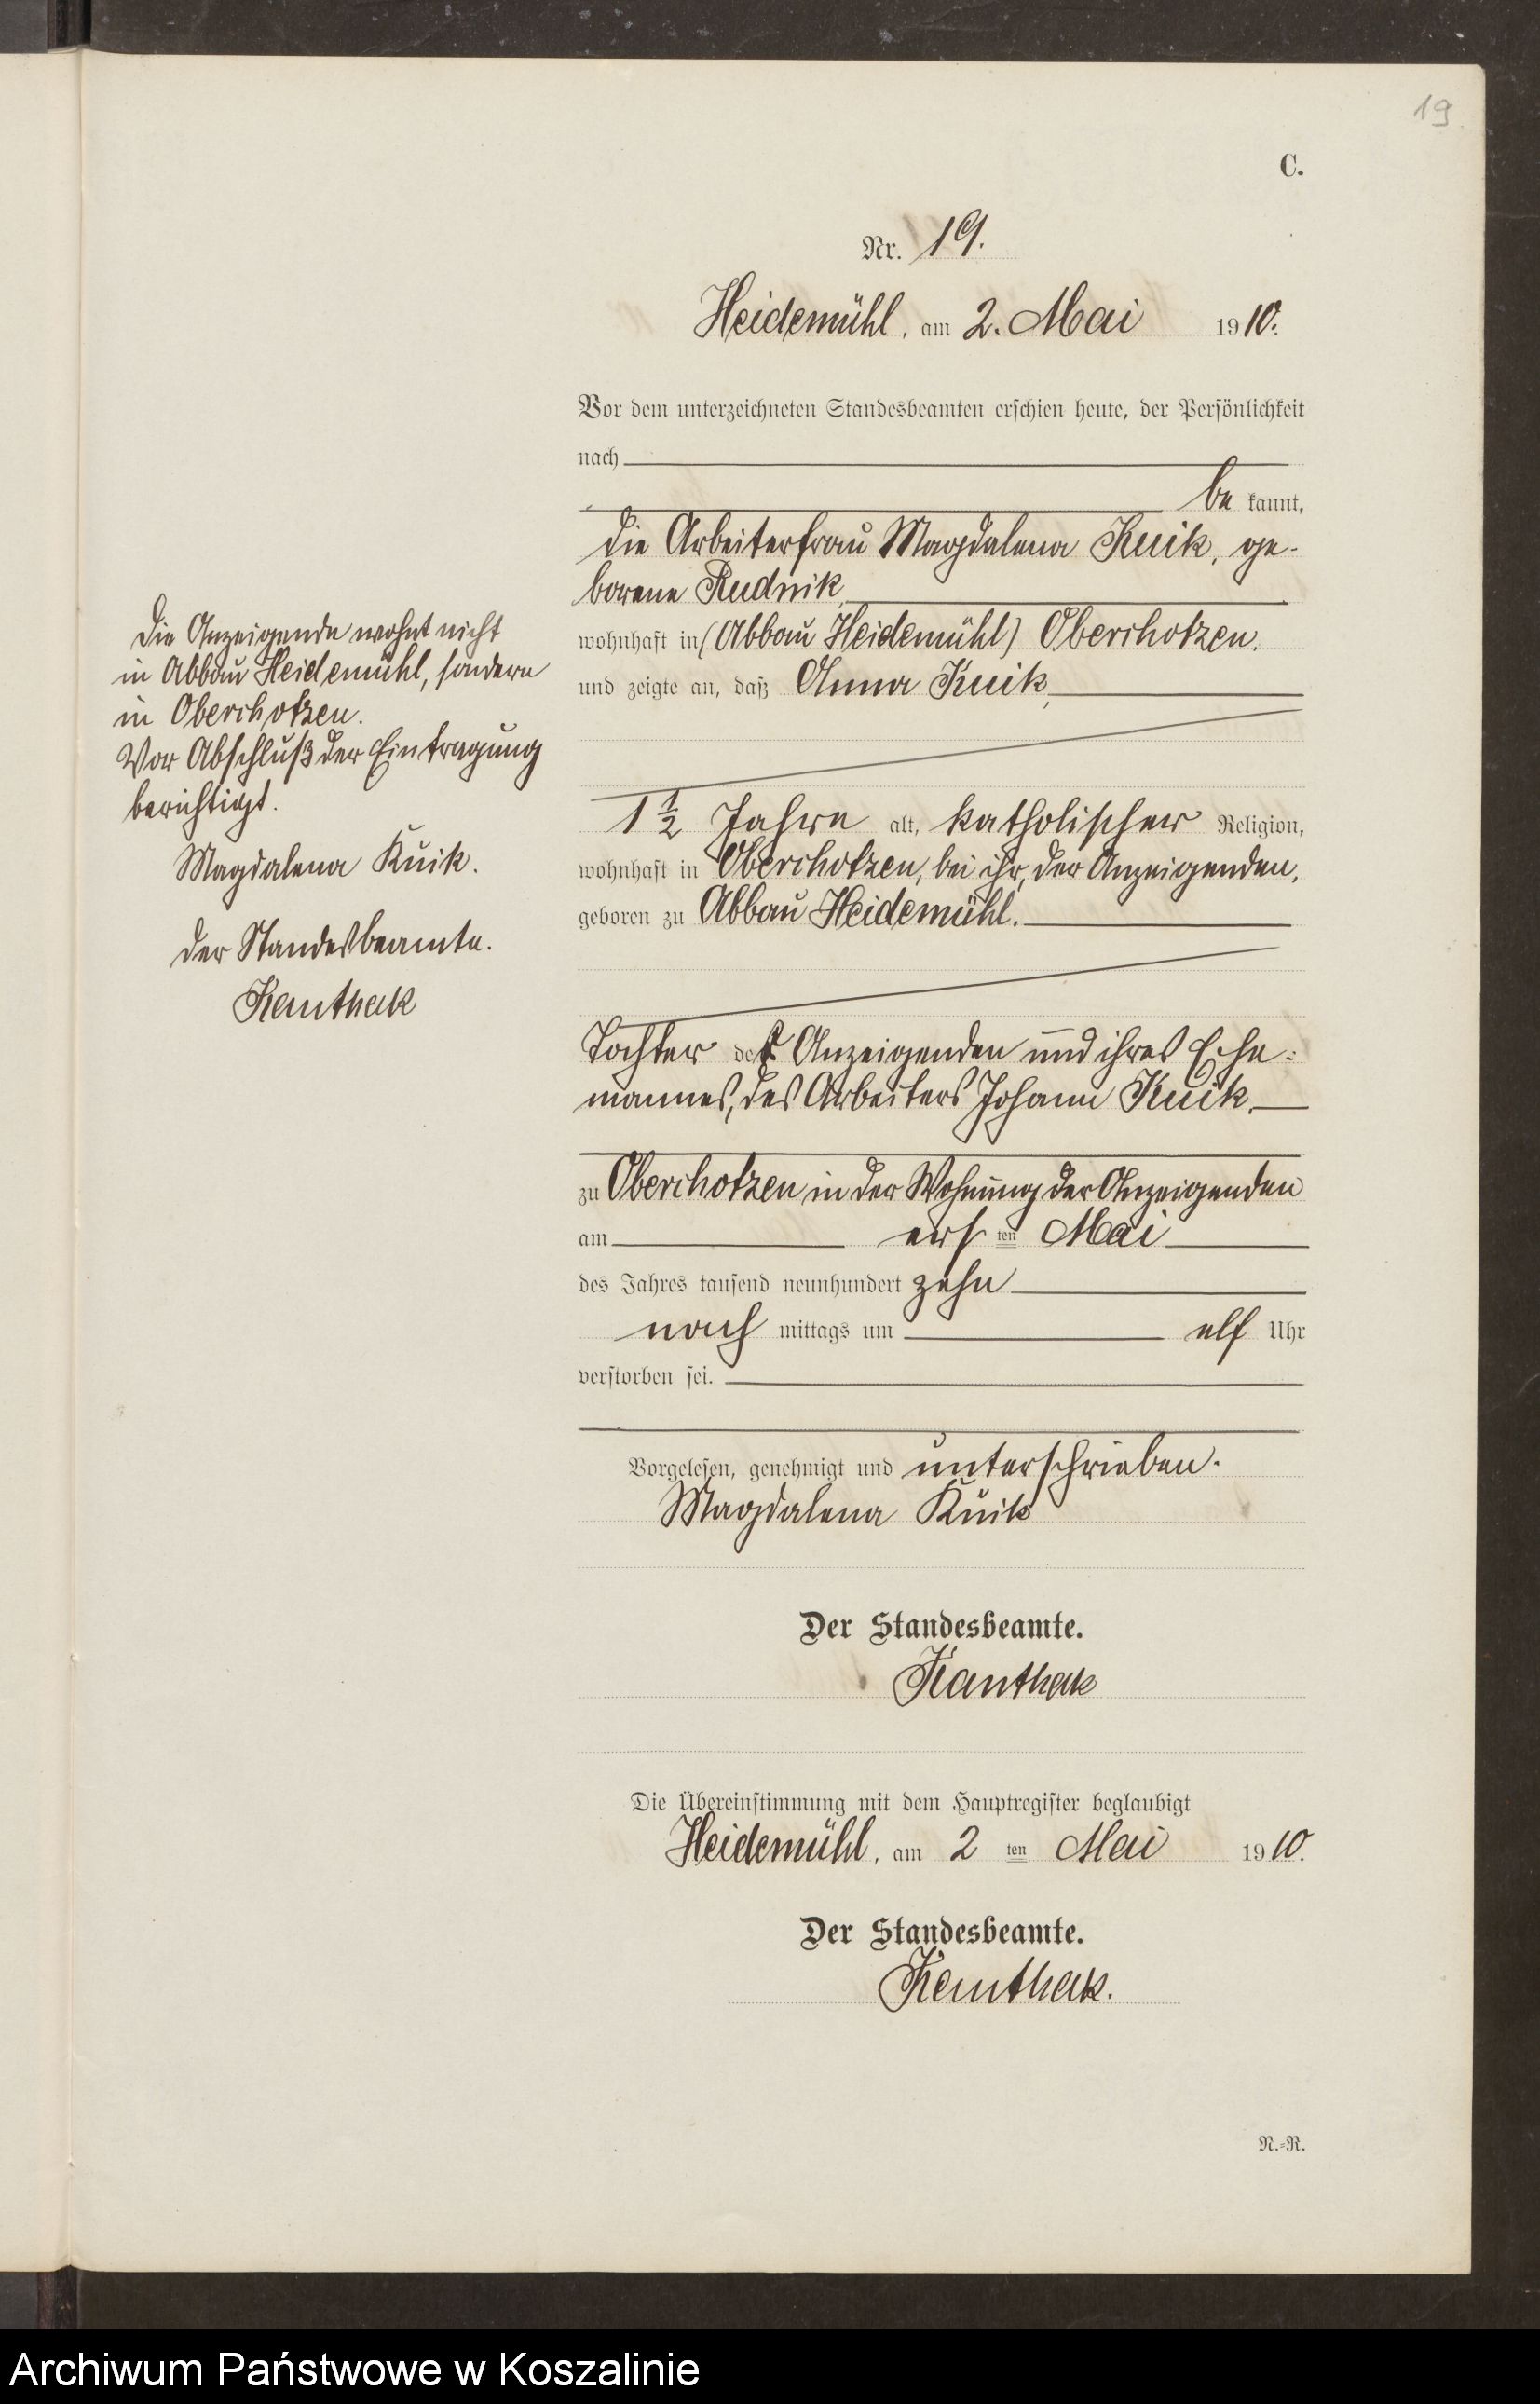 19
C.
Nr. 19.
Heidemühl, am 2. Mai 1910.
Vor dem unterzeichneten Standesbeamten erschien heute, der Persönlichkeit
nach
be kannt,
die Arbeiterfrau Magdalena Kuik, ge-
borene Rudnik,
wohnhaft in (Abbau Heidemühl) Oberchotzen.
und zeigte an, daß Anna Kuik,
1 1/2 Jahre alt, katholischer Religion,
wohnhaft in Oberchotzen, bei ihr, der Anzeigenden,
geboren zu Abbau Heidemühl.
Tochter der Anzeigenden und ihres Ehe-
mannes, des Arbeiters Johann Kuik,
zu Oberchotzen in der Wohnung der Anzeigenden
am ersten Mai
des Jahres tausend neunhundert zehn
nach mittags um elf Uhr
verstorben sei.
Vorgelesen, genehmigt und unterschrieben.
Magdalena Kuik
Der Standesbeamte.
Kanthak
Die Übereinstimmung mit dem Hauptregister beglaubigt
Heidemühl, am 2ten Mai 1910.
Der Standesbeamte.
Kanthak.
N.-R.
Die Anzeigende wohnt nicht
in Abbau Heidemühl, sondern
in Oberchotzen.
Vor Abschluß der Eintragung
berichtigt.
Magdalena Kuik.
Der Standesbeamte.
Kanthak
Archiwum Państwowe w Koszalinie